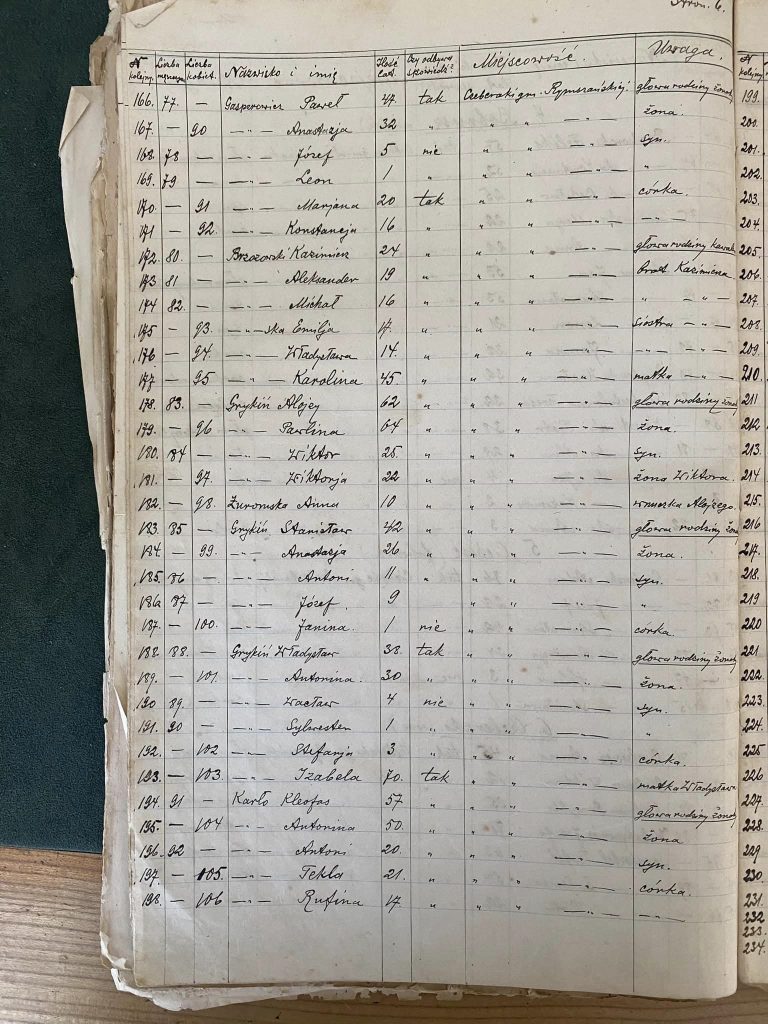 Stron. 6.
N kolejny. Liczba mężczyzn Liczba kobiet. Nazwisko i imię Ilość lat. Czy odbywa spowiedź? Miejscowość. Uwaga.
166. 77. — Gasperowicz Paweł 47. tak gm. Rymszańskiej. głowa rodziny
167. — 90 —„— Anastazja 32 „ „ „ —„— żona.
168. 78 — —„— Józef 5 nie „ „ —„— syn.
169. 79 — —„— Leon 1 „ „ „ —„— „
170. — 91 —„— Marjana 20 tak „ „ —„— córka.
171 — 92. —„— Konstancja 16 „ „ „ —„— —„—
172. 80. — Brzozowski Kazimierz 24 „ „ „ —„— głowa rodziny kawal
173 81 — —„— Aleksander 19 „ „ „ —„— brat Kazimierza
174 82. — —„— Michał 16 „ „ „ —„— „ —„—
175 — 93. —„—ska Emilja 17. „ „ „ —„— siostra —„—
176 — 94. —„— Władysława 14. „ „ „ —„— —„— —„—
177 — 95 —„— Karolina 45. „ „ „ —„— matka —„—
178. 83. — Grykiń Alojzy 62 „ „ „ —„— głowa rodziny
179. — 96 —„— Pawlina 64 „ „ „ —„— żona.
180. 84 — —„— Wiktor 25. „ „ „ —„— syn.
181. — 97. —„— Wiktorja 22 „ „ „ —„— żona Wiktora.
182. — 98. Żuromska Anna 10 „ „ „ —„— wnuczka Alojzego.
183. 85 — Grykiń Stanisław 42 „ „ „ —„— głowa rodziny
184. — 99. —„— Anastazja 26 „ „ „ —„— żona.
185. 86 — —„— Antoni 11 „ „ „ —„— syn.
186 87 — —„— Józef. 9 „ „ —„— „
187. — 100. —„— Janina. 1 nie „ „ —„— córka.
188. 88. — Grykiń Władysław 38. tak „ „ —„— głowa rodziny
189. — 101. —„— Antonina. 30 „ „ „ —„— żona.
190 89. — —„— Wacław 4 nie „ „ —„— syn.
191. 90 — —„— Sylwester 1 „ „ „ —„— „
192. — 102 —„— Stefanja 3 „ „ „ —„— córka.
193. — 103 —„— Izabela 70. tak „ „ —„— matka Władysława
194. 91 — Karło Kleofas 57. „ „ „ —„— głowa rodziny
195. — 104 —„— Antonina 50. „ „ „ —„— żona
196. 92 — —„— Antoni 20. „ „ „ —„— syn.
197. — 105 —„— Tekla 21. „ „ „ —„— córka.
198. — 106 —„— Rufina 17. „ „ „ —„— —„—
N kolejny
199.
200.
201.
202.
203.
204.
205.
206.
207.
208.
209.
210.
211
212
213.
214
215.
216
217.
218.
219
220
221.
222.
223.
224.
225
226
227.
228.
229
230.
231.
232
233.
234.